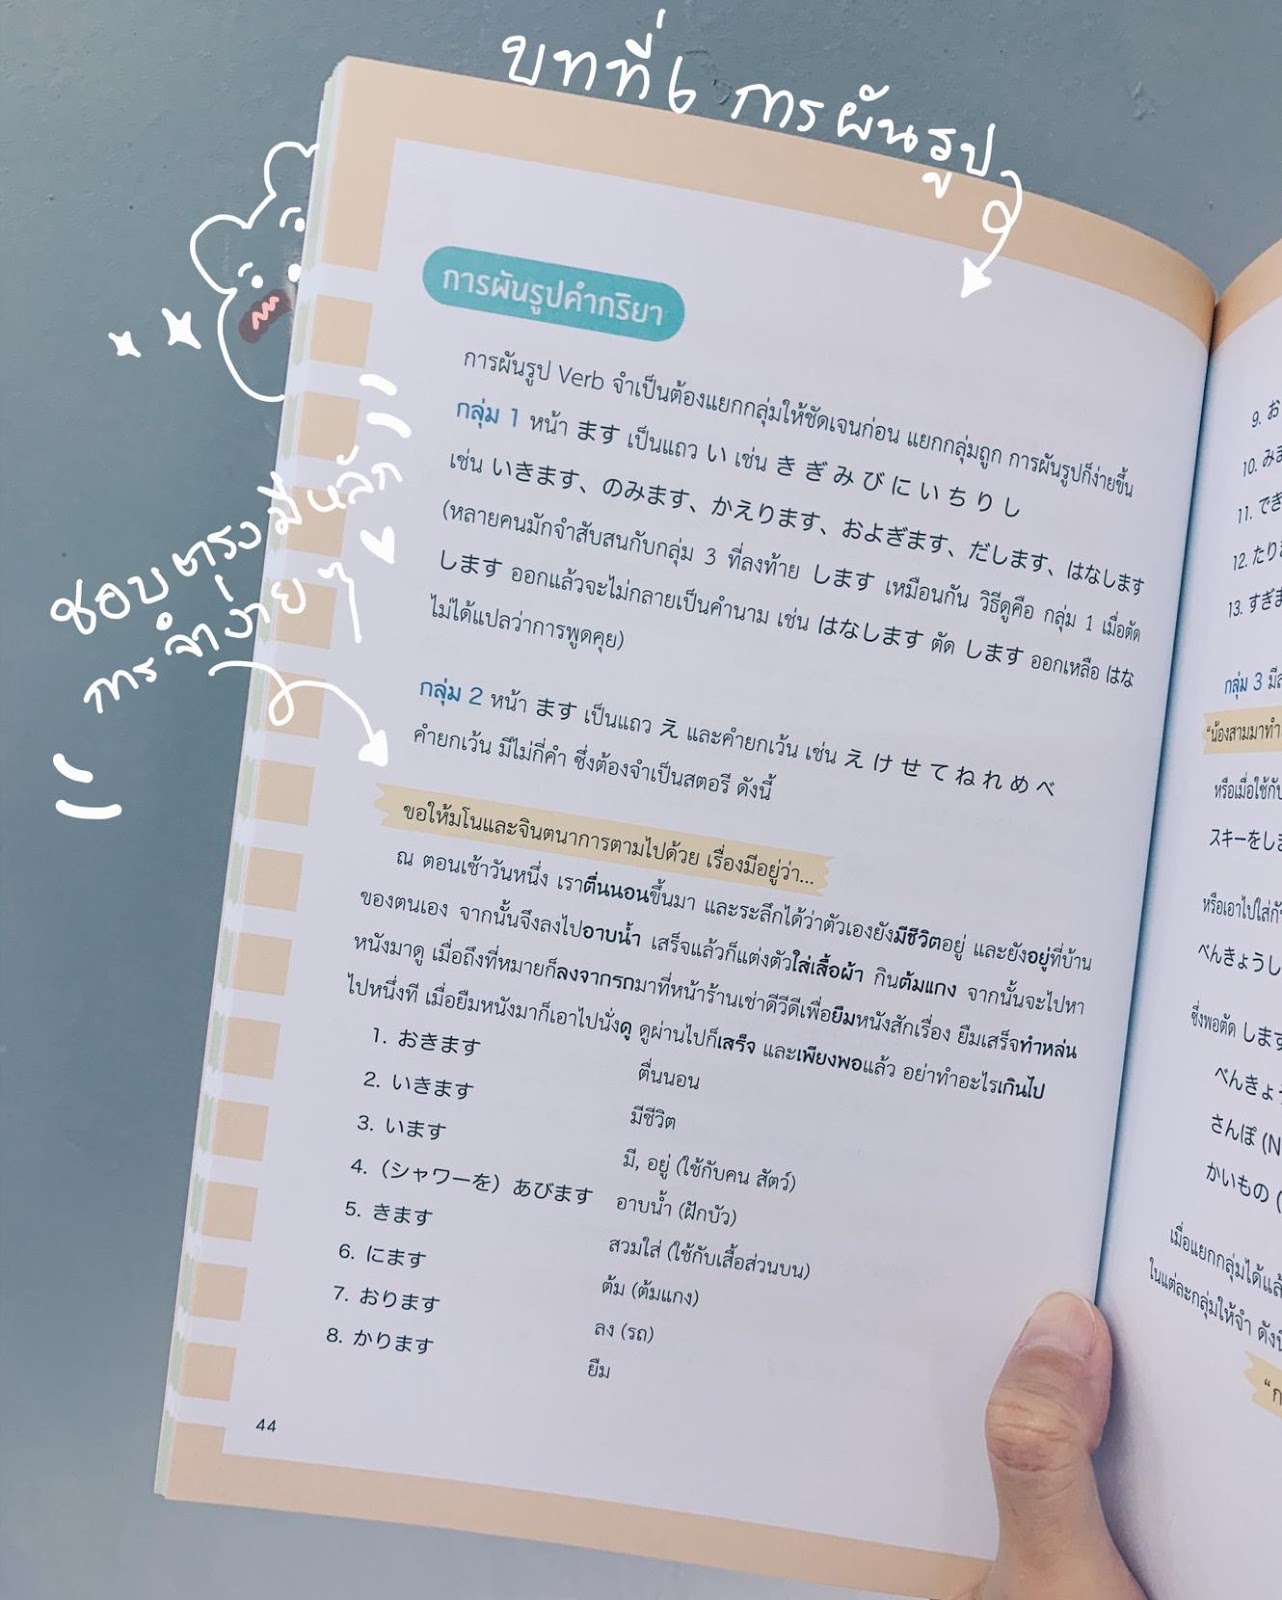 บทที่ 6 การผันรูป
การผันรูปคำกริยา
การผันรูป Verb จำเป็นต้องแยกกลุ่มให้ชัดเจนก่อน แยกกลุ่มถูก การผันรูปก็ง่ายขึ้น
กลุ่ม 1 หน้า ます เป็นแถว い เช่น き ぎ み び に い ち り し
เช่น いきます、のみます、かえります、およぎます、だします、はなします
(หลายคนมักจำสับสนกับกลุ่ม 3 ที่ลงท้าย します เหมือนกัน วิธีดูคือ กลุ่ม 1 เมื่อตัด
します ออกแล้วจะไม่กลายเป็นคำนาม เช่น はなします ตัด します ออกเหลือ はな
ไม่ได้แปลว่าการพูดคุย)
ชอบตรงมีหลัก
การจำง่าย ๆ
กลุ่ม 2 หน้า ます เป็นแถว え และคำยกเว้น เช่น え け せ て ね れ め べ
คำยกเว้น มีไม่กี่คำ ซึ่งต้องจำเป็นสตอรี ดังนี้
ขอให้มโนและจินตนาการตามไปด้วย เรื่องมีอยู่ว่า...
ณ ตอนเช้าวันหนึ่ง เราตื่นนอนขึ้นมา และระลึกได้ว่าตัวเองยังมีชีวิตอยู่ และยังอยู่ที่บ้าน
ของตนเอง จากนั้นจึงลงไปอาบน้ำ เสร็จแล้วก็แต่งตัวใส่เสื้อผ้า กินต้มแกง จากนั้นจะไปหา
หนังมาดู เมื่อถึงที่หมายก็ลงจากรถมาที่หน้าร้านเช่าดีวีดีเพื่อยืมหนังสักเรื่อง ยืมเสร็จทำหล่น
ไปหนึ่งที เมื่อยืมหนังมาก็เอาไปนั่งดู ดูผ่านไปก็เสร็จ และเพียงพอแล้ว อย่าทำอะไรเกินไป
1. おきます ตื่นนอน
2. いきます มีชีวิต
3. います มี, อยู่ (ใช้กับคน สัตว์)
4. (シャワーを) あびます อาบน้ำ (ฝักบัว)
5. きます สวมใส่ (ใช้กับเสื้อส่วนบน)
6. にます ต้ม (ต้มแกง)
7. おります ลง (รถ)
8. かります ยืม
44
9. お
10. みま
11. でき
12. たりま
13. すぎま
กลุ่ม 3 มี
"น้องสามมาทำ
หรือเมื่อใช้กับ
スキーをしま
หรือเอาไปใส่กับ
べんきょうし
ซึ่งพอตัด します
べんきょう
さんぽ (N
かいもの (
เมื่อแยกกลุ่มได้แล้
ในแต่ละกลุ่มให้จำ ดังนี้
"ก